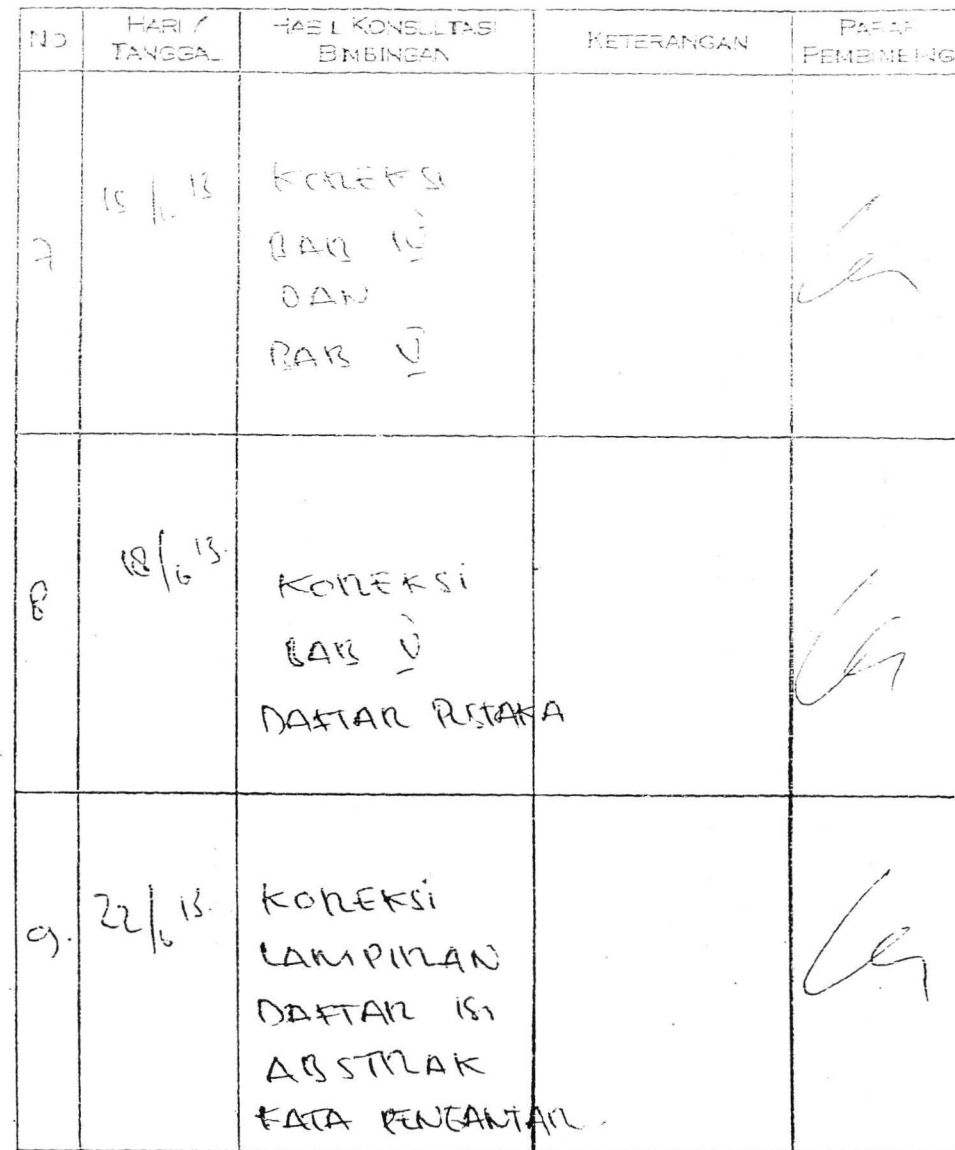 NO HARI / TANGGAL HASIL KONSULTASI BIMBINGAN KETERANGAN PARAF PEMBIMBING
7 15/6 13 KOREKSI
BAB IV
DAN
BAB V
8 18/6 13. KOREKSI
BAB V
DAFTAR PUSTAKA
9. 22/6 13. KOREKSI
LAMPIRAN
DAFTAR ISI
ABSTRAK
KATA PENGANTAR.